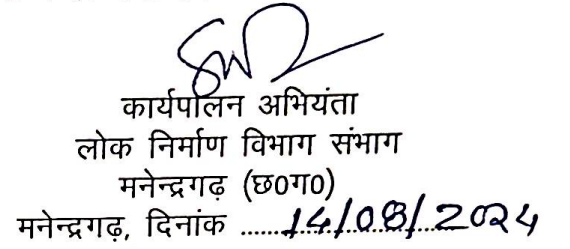 कार्यपालन अभियंता
लोक निर्माण विभाग संभाग
मनेन्द्रगढ़ (छ0ग0)
मनेन्द्रगढ़, दिनांक ....14/08/2024